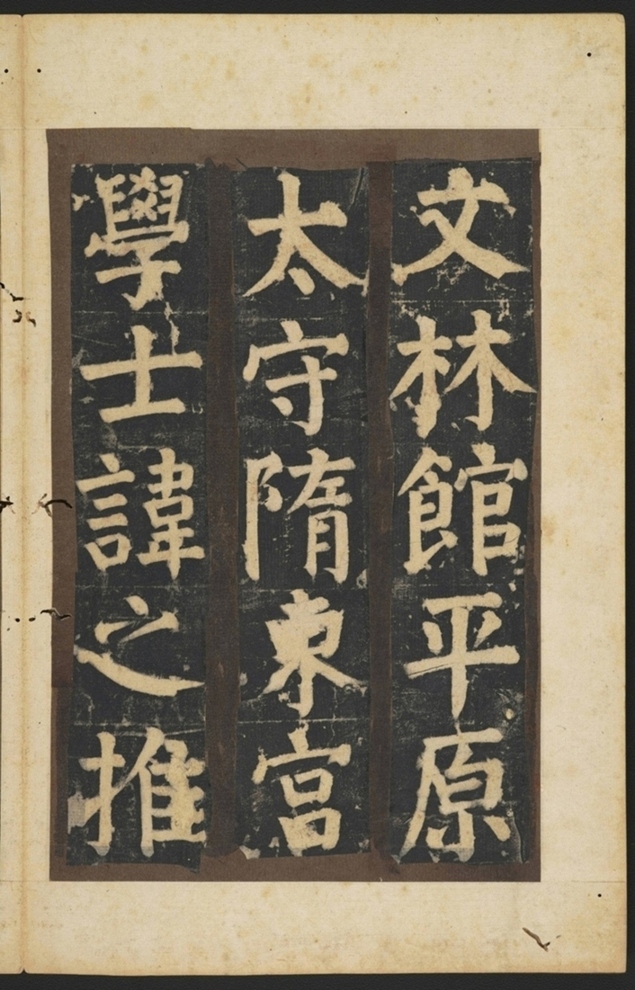 文林館平原
太守隋東宮
學士諱之推